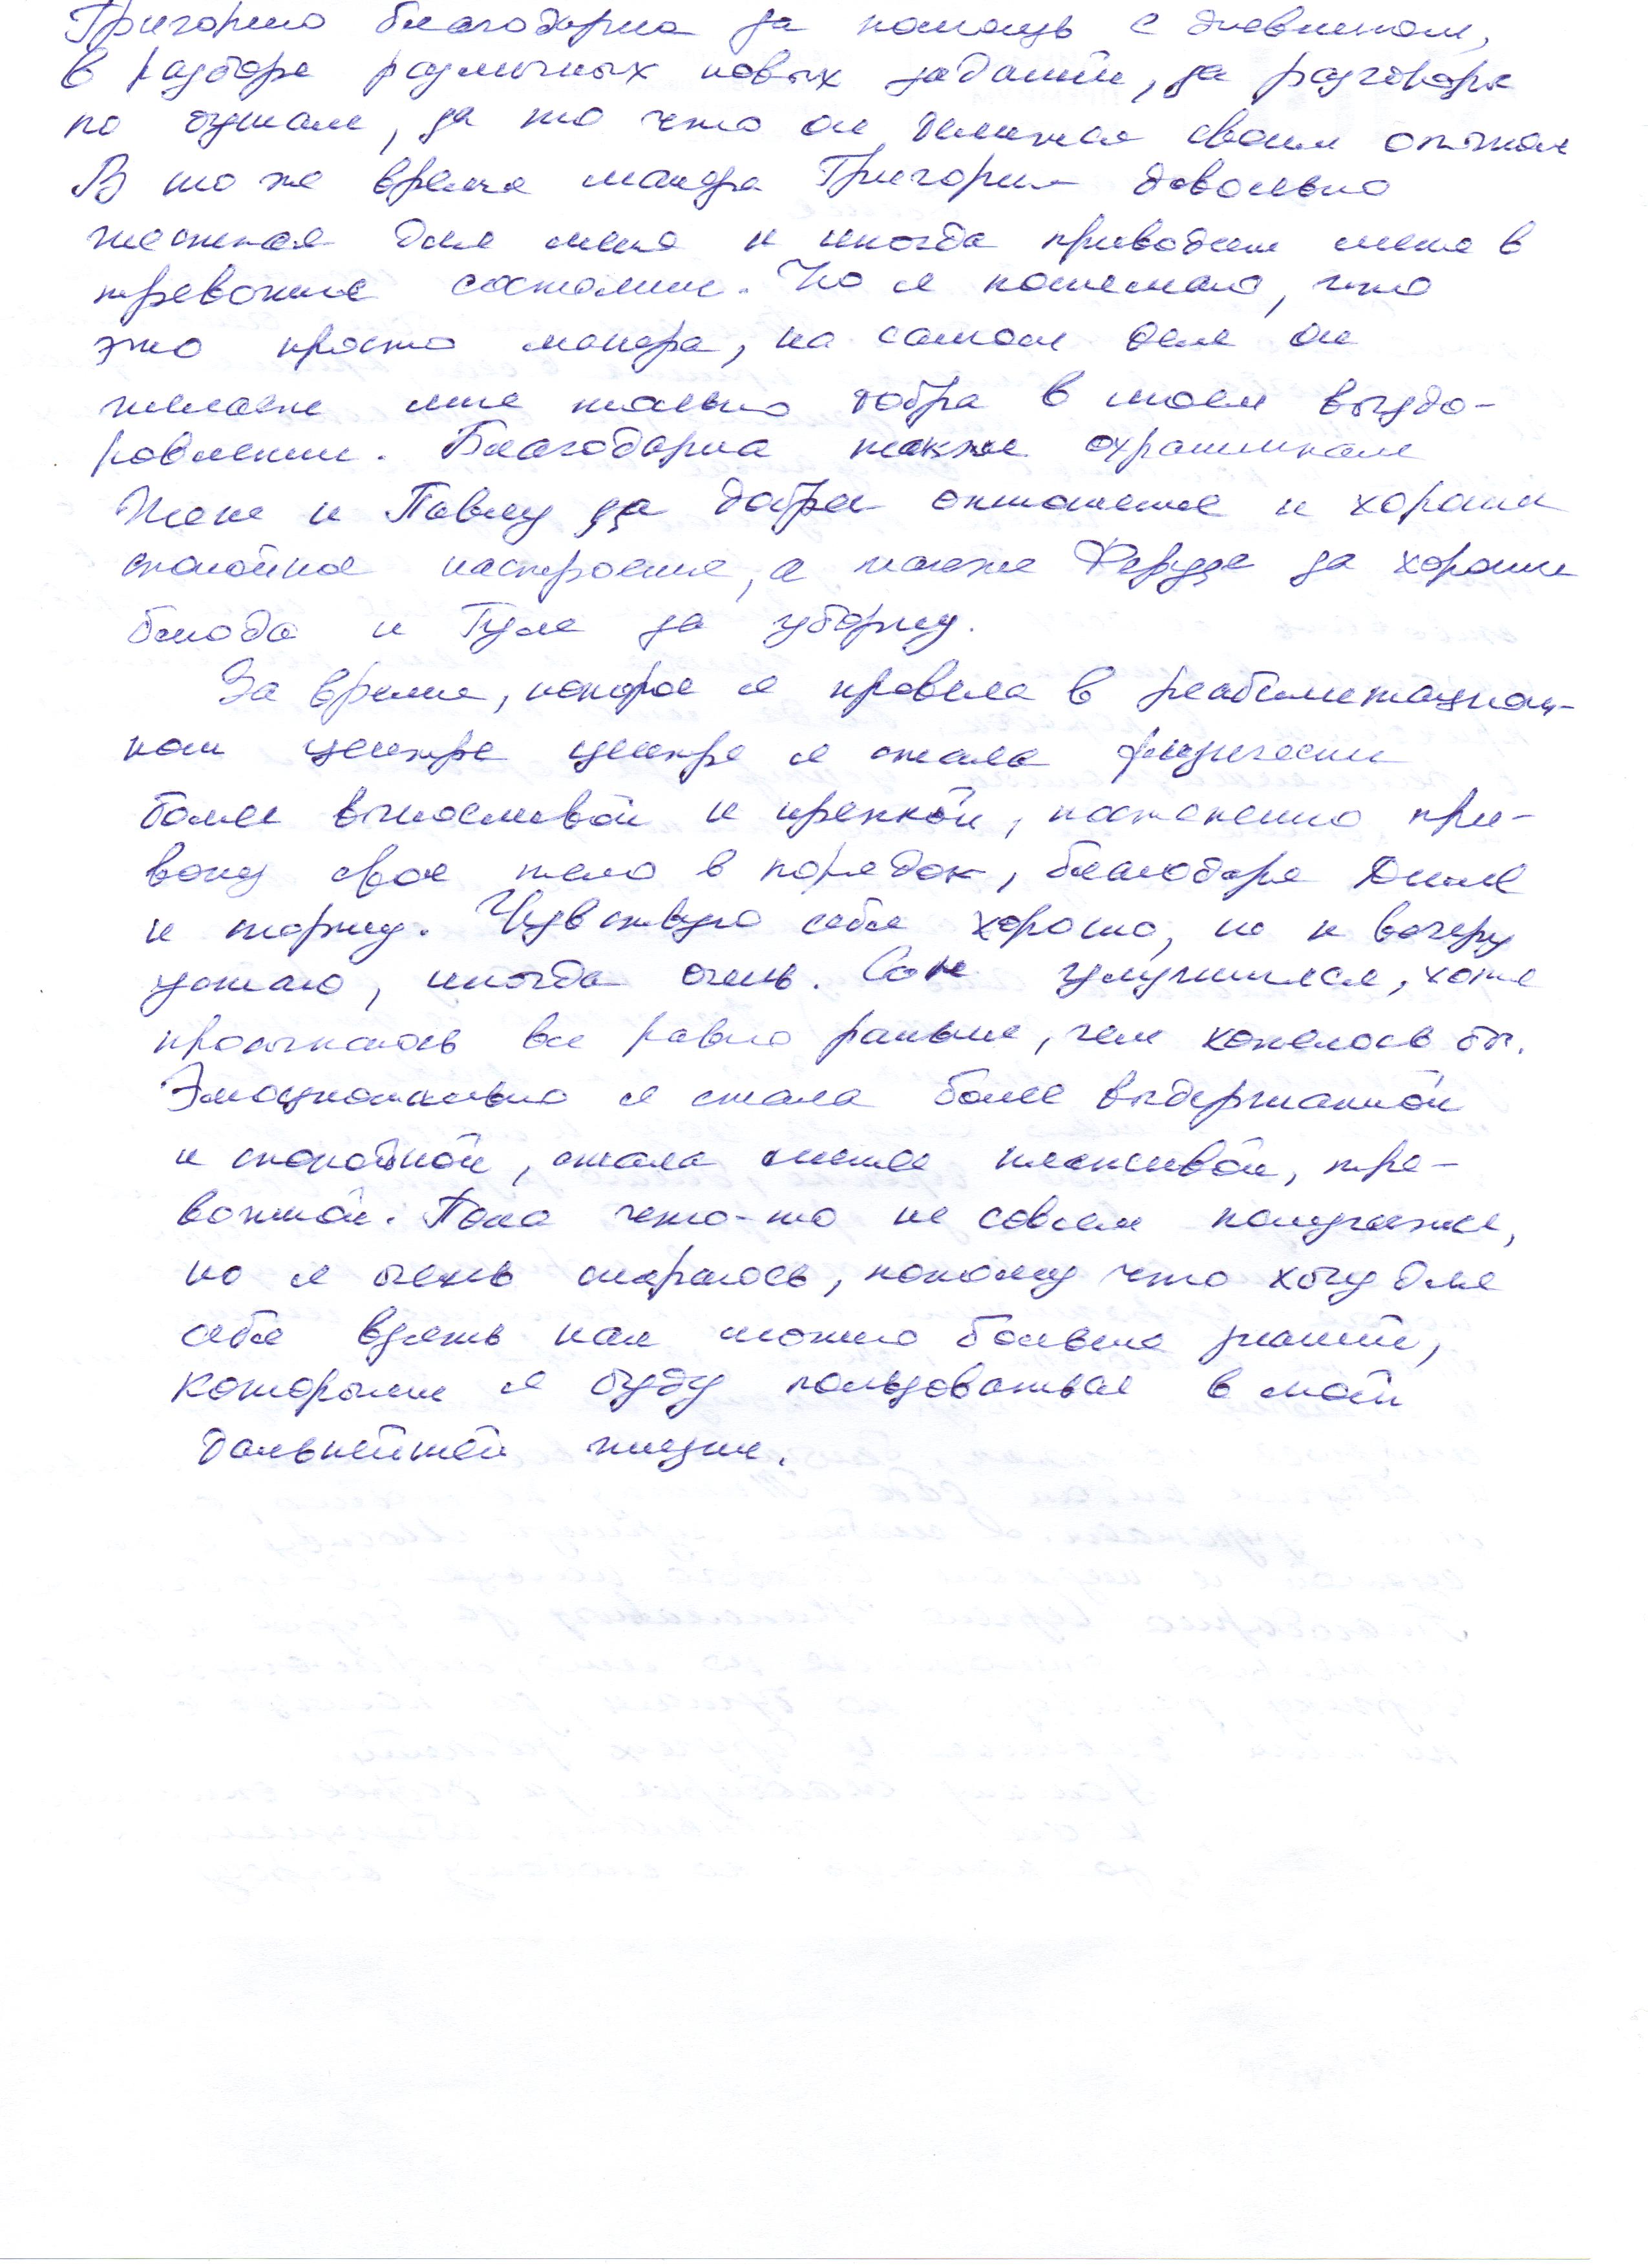 Григорию благодарна за помощь с дневником,
в разборе различных новых заданий, за разговоры
по душам, за то что он делится своим опытом
В то же время манера Григория довольно
жесткая для меня и иногда приводит меня в
тревожные состояния. Но я понимаю, что
это просто манера, на самом деле он
желает мне только добра в моем выздо-
ровлении. Благодарна также охранникам
Жене и Павлу за доброе отношение и хорошее
спокойное настроение, а также за хорошие
блюда и Гуле за уборку.
За время, которое я провела в реабилитацион-
ном центре центре я стала физически
более выносливой и крепкой, постепенно при-
вожу свое тело в порядок, благодаря Диме
и спорту. Чувствую себя хорошо, но к вечеру
устаю, иногда очень. Сон улучшился, хотя
просыпаюсь все равно раньше, чем хотелось бы.
Эмоционально я стала более выдержанной
и спокойной, стала менее плаксивой, тре-
вожной. Пока чего-то не совсем получается,
но я очень стараюсь, потому что хочу для
себя взять как можно больше знаний,
которыми я буду пользоваться в моей
дальнейшей жизни.